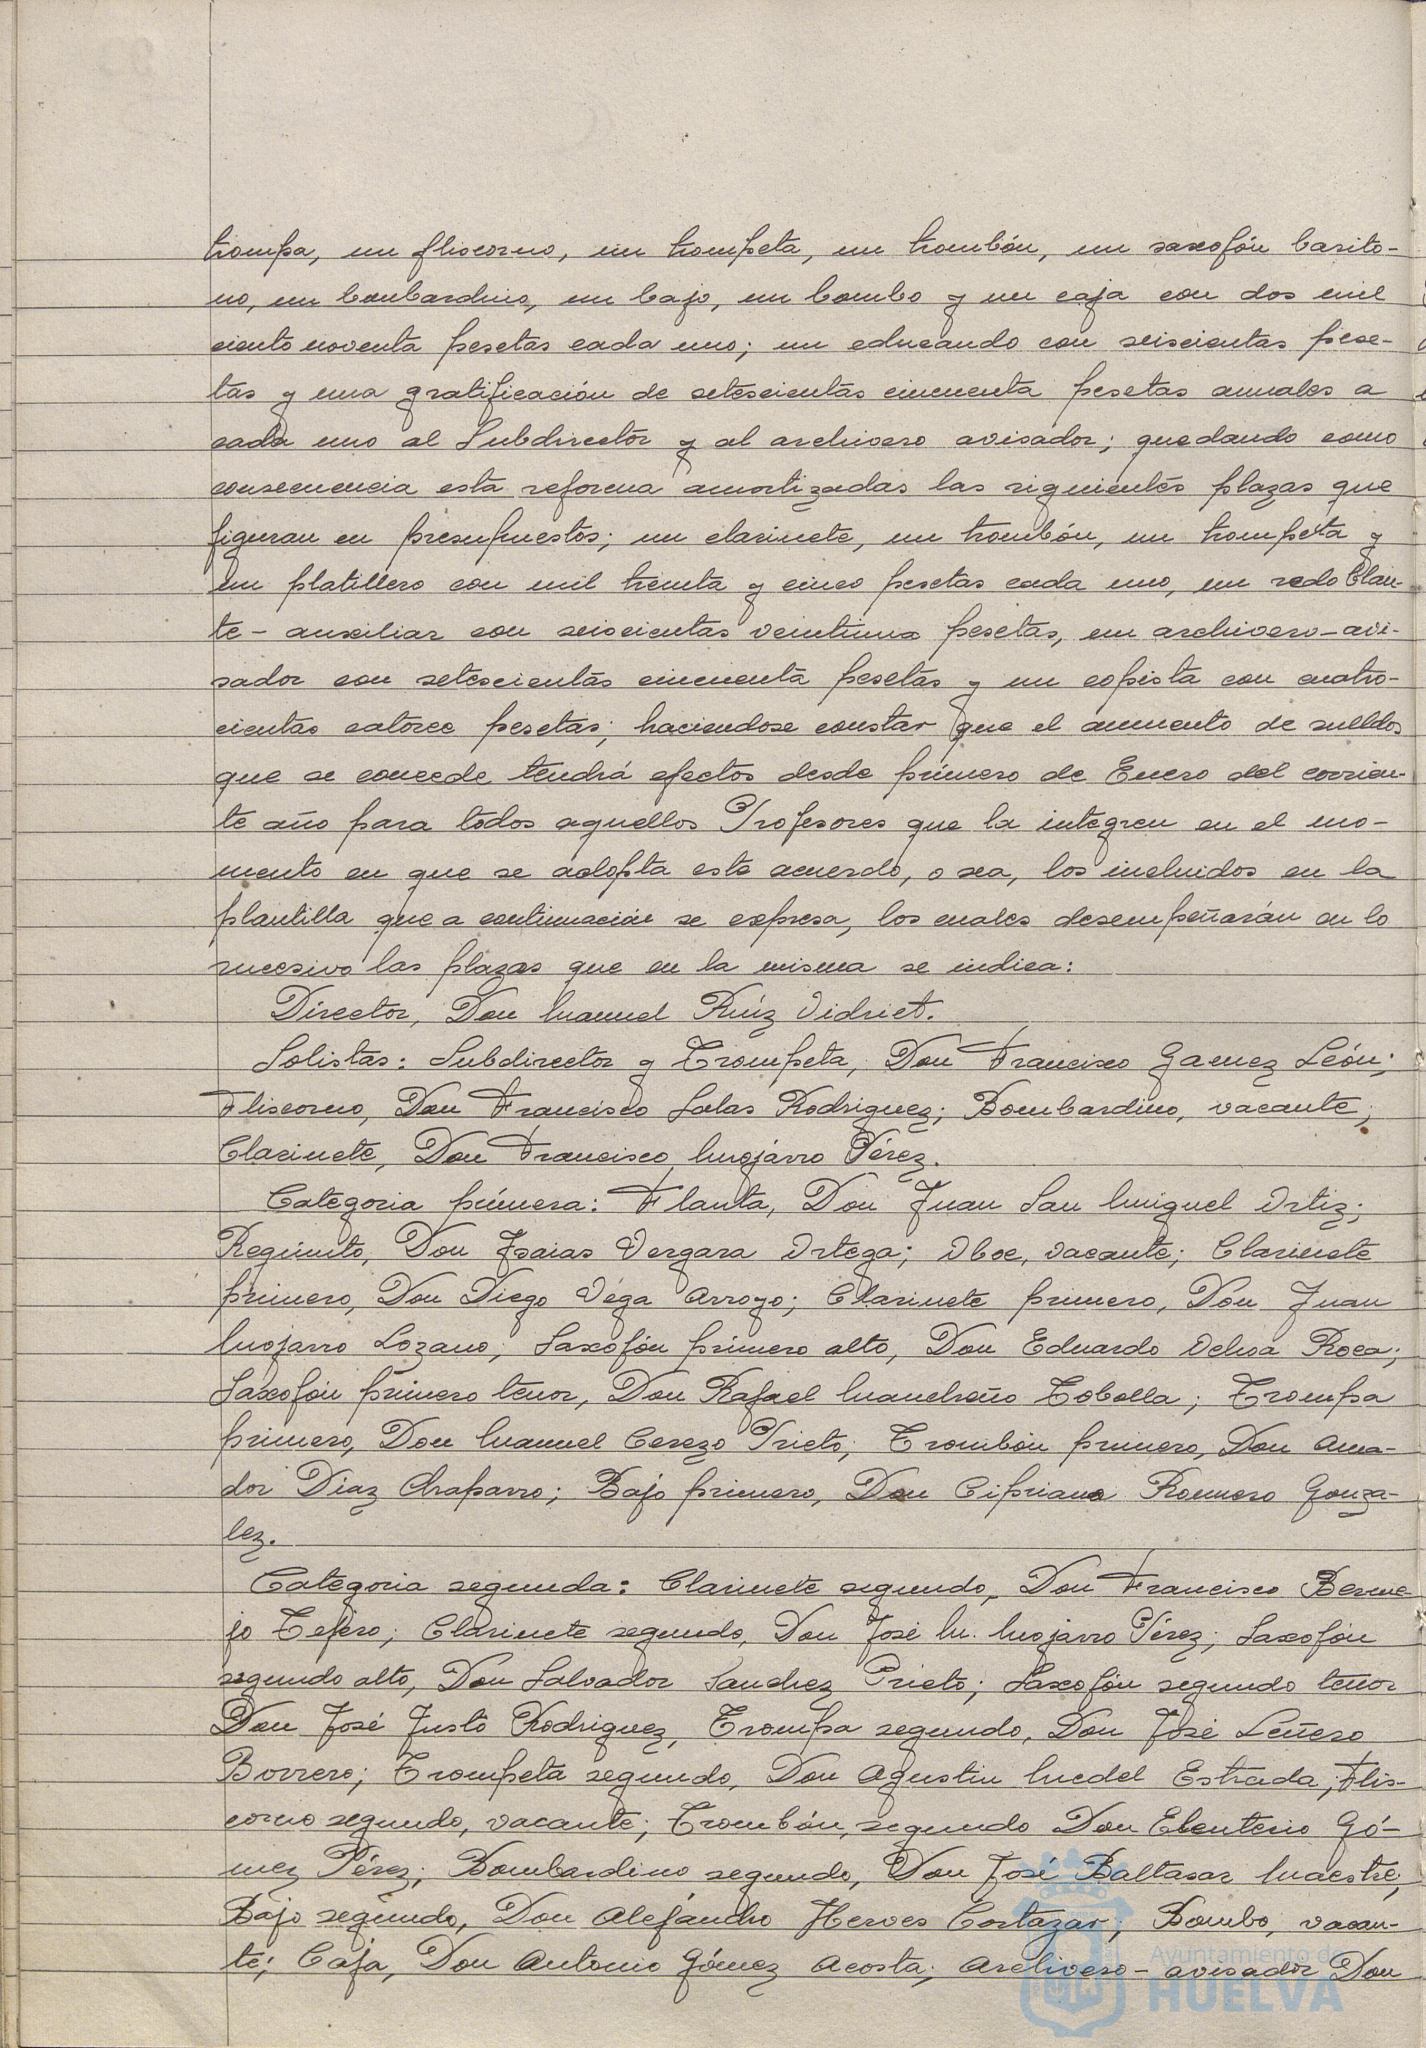 trompa, un fliscorno, un trompeta, un trombón, un saxofón baríto-
no, un bombardino, un bajo, un bombo y un caja con dos mil
ciento noventa pesetas cada uno; un educando con seiscientas pese-
tas y una gratificación de setescientas cincuenta pesetas anuales a
cada uno al Subdirector y al archivero avisador; quedando como
consecuencia esta reforma amortizadas las siguientes plazas que
figuran en presupuestos; un clarinete, un trombón, un trompeta y
un platillero con mil treinta y cinco pesetas cada uno, un redoblan-
te-auxiliar con seiscientas veintiuna pesetas, un archivero-avi-
sador con setescientas cincuenta pesetas y un copista con cuatro-
cientas catorce pesetas; haciendose constar que el aumento de sueldos
que se concede tendrá efectos desde primero de Enero del corrien-
te año para todos aquellos Profesores que la integren en el mo-
mento en que se adopta este acuerdo, o sea, los incluidos en la
plantilla que a continuación se expresa, los cuales desempeñarán en lo
sucesivo las plazas que en la misma se indica:
Director, Don Manuel Ruíz Vidriet.
Solistas: Subdirector y Trompeta, Don Francisco Gamez León;
Fliscorno, Don Francisco Salas Rodriguez; Bombardino, vacante;
Clarinete, Don Francisco Mojarro Pérez.
Categoria primera: Flauta, Don Juan San Miguel Ortiz;
Requinto, Don Isaias Vergara Ortega; Oboe, vacante; Clarinete
primero, Don Diego Véga Arroyo; Clarinete primero, Dón Juan
Mojarro Lozano; Saxofón primero alto, Don Eduardo Ochoa Roca;
Saxofón primero tenor, Don Rafael Mancheño Tobella; Trompa
primero, Don Manuel Cerezo Prieto; Trombón primero, Don Ama-
dor Diaz Chaparro; Bajo primero, Don Cipriano Romero Gonza-
lez.
Categoria segunda: Clarinete segundo, Don Francisco Berme-
jo Tejero; Clarinete segundo, Don José M. Mojarro Pérez; Saxofón
segundo alto, Don Salvador Sanchez Prieto; Saxofón segundo tenor
Don José Justo Rodriguez, Trompa segundo, Don José Leñero
Borrero; Trompeta segundo, Don Agustin Medel Estrada; Flis-
corno segundo, vacante; Trombón, segundo Don Eleuterio Gó-
mez Pérez; Bombardino segundo, Don José Baltasar Maestre;
Bajo segundo, Don Alejandro Herves Cortazar; Bombo, vacan-
te; Caja, Don Antonio Gómez Acosta; Archivero-avisador Don
Ayuntamiento de
HUELVA